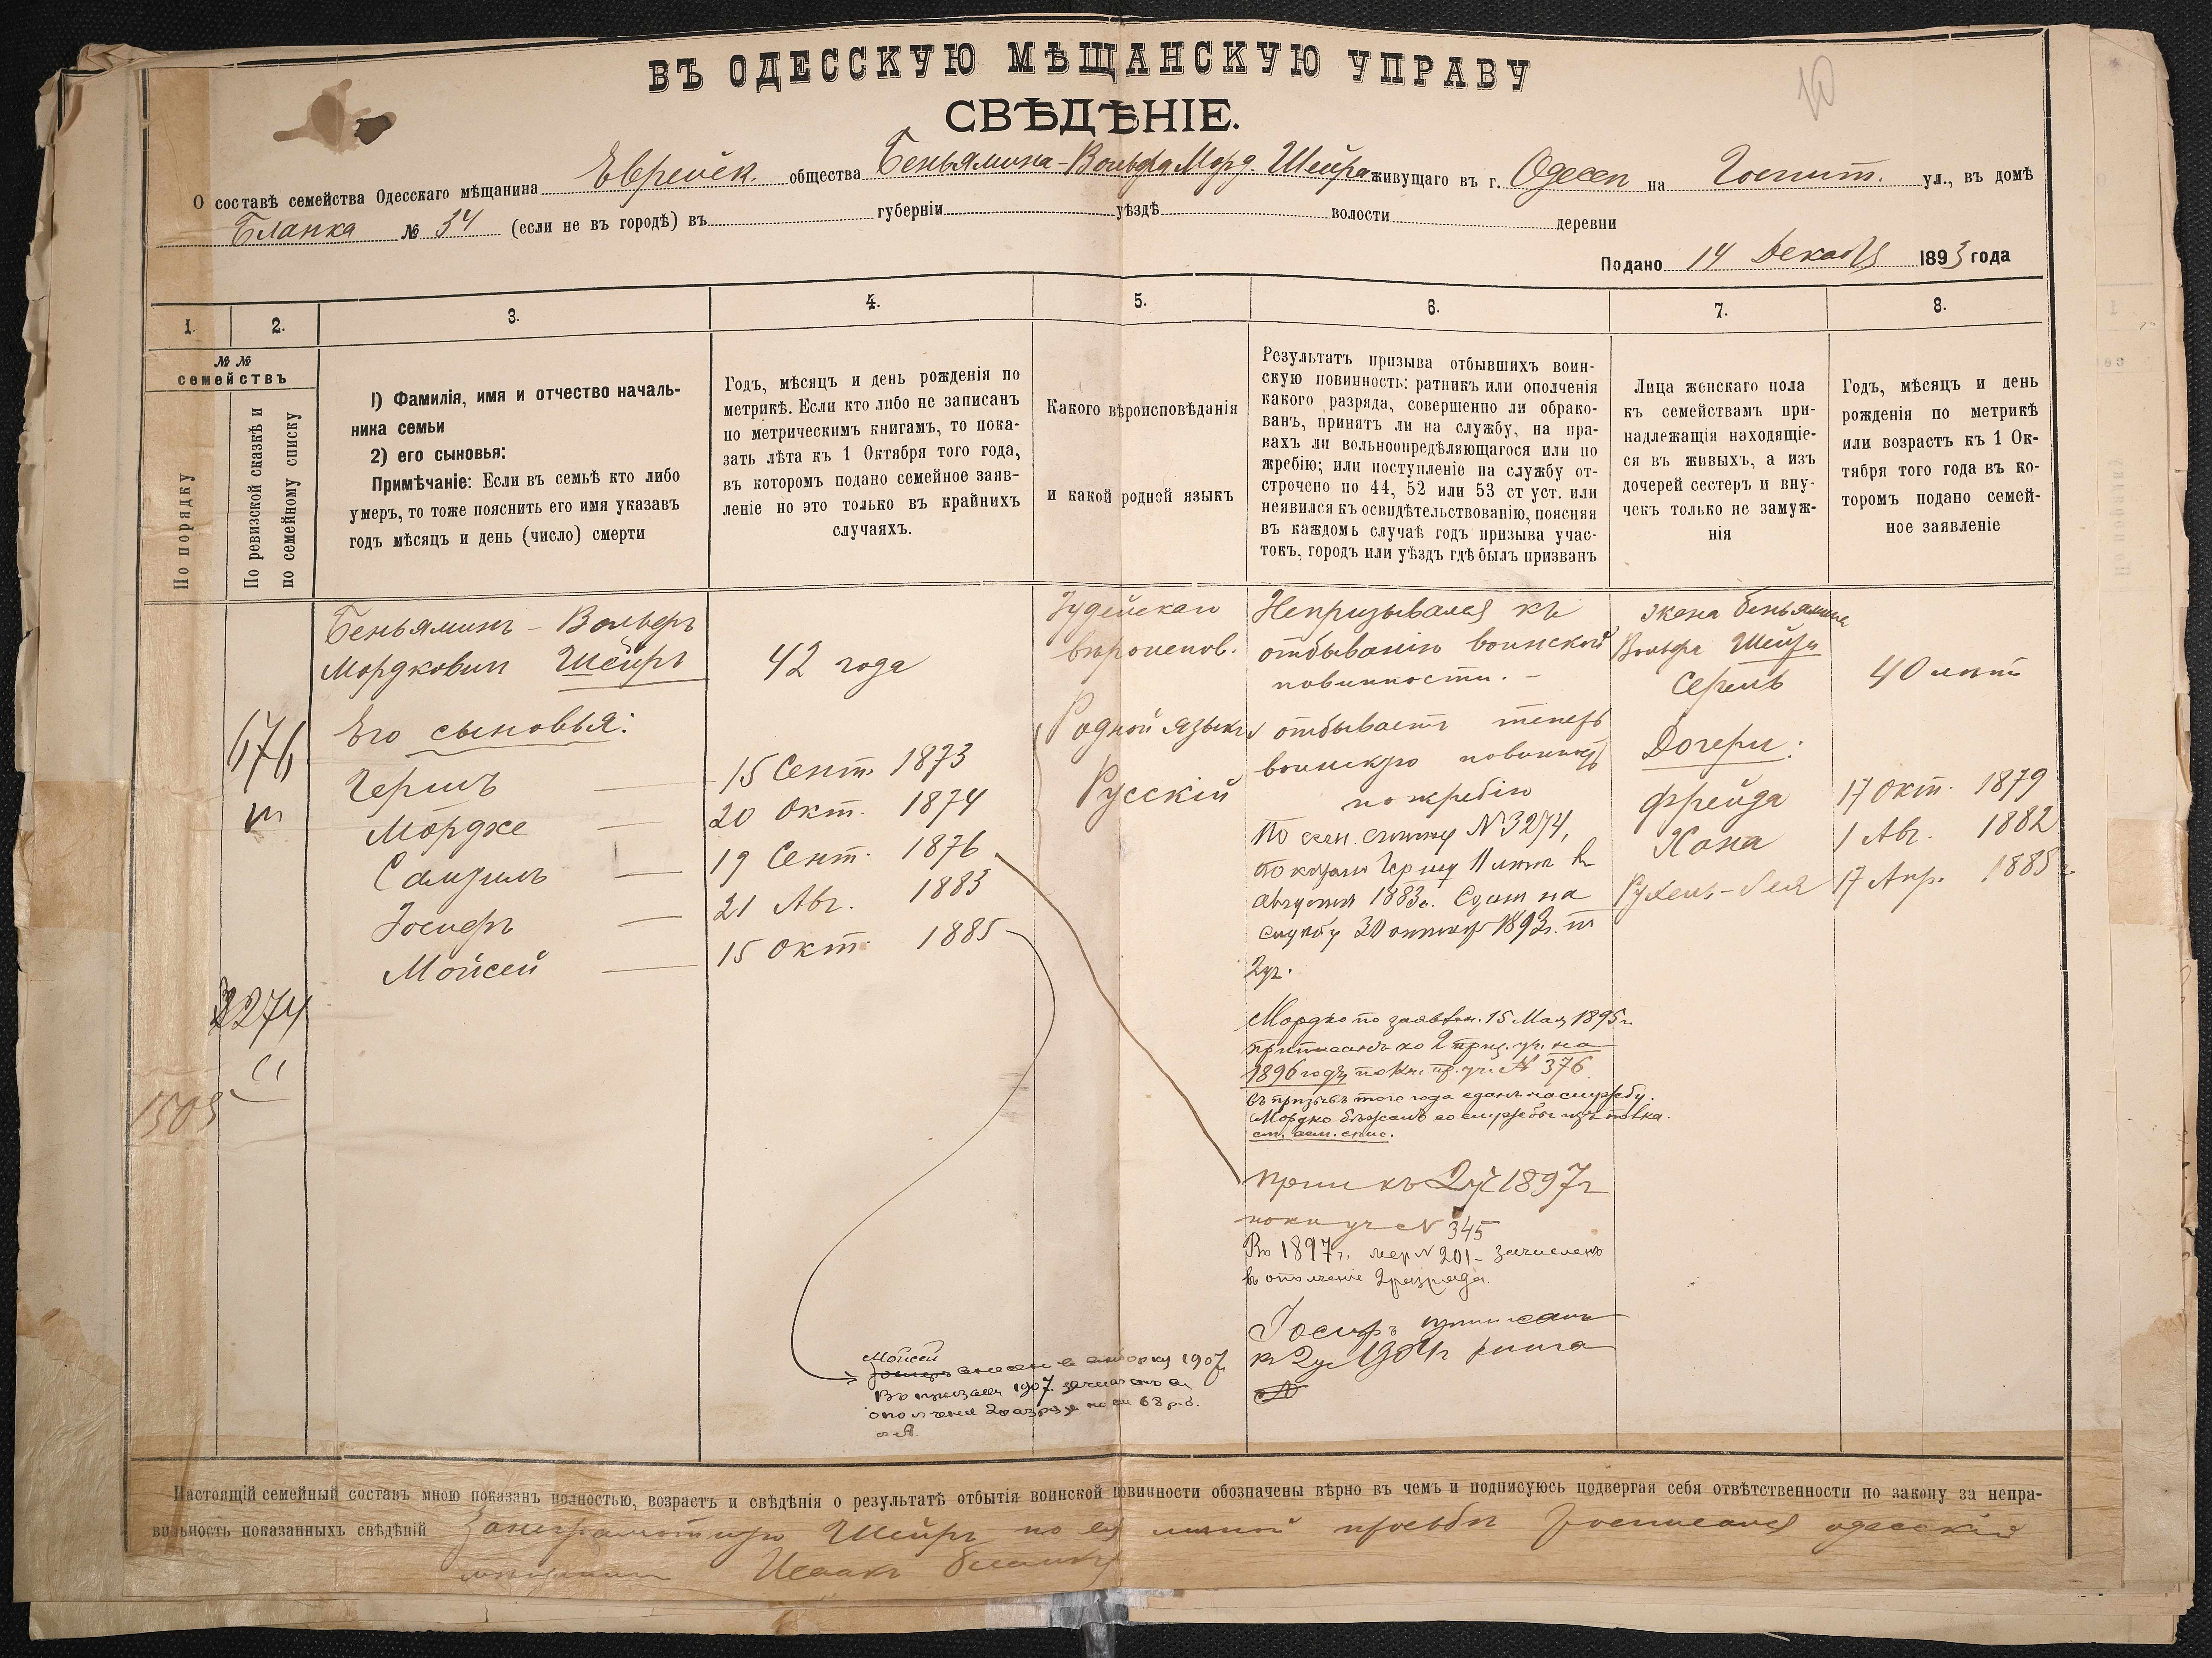 ВЪ ОДЕССКУЮ МѢЩАНСКУЮ УПРАВУ
СВѢДѢНІЕ.
10
О составѣ семейства Одесскаго мѣщанина Еврейск. общества Беньямина-Вольфа Морд. Шейра живущаго въ г. Одессѣ на Госпит. ул., въ домѣ
Бланка № 34 (если не въ городѣ) въ губерніи уѣздѣ волости деревни
Подано 14 Декабря 1893 года
1. 2. 3. 4. 5. 6. 7. 8.
№ №
семействъ
По порядку
По ревизской сказкѣ и
по семейному списку
1) Фамилія, имя и отчество началь-
ника семьи
2) его сыновья:
Примѣчаніе: Если въ семьѣ кто либо
умеръ, то тоже пояснить его имя указавъ
годъ мѣсяцъ и день (число) смерти
Годъ, мѣсяцъ и день рожденія по
метрикѣ. Если кто либо не записанъ
по метрическимъ книгамъ, то пока-
зать лѣта къ 1 Октября того года,
въ которомъ подано семейное заяв-
леніе но это только въ крайнихъ
случаяхъ.
Какого вѣроисповѣданія
и какой родной языкъ
Результатъ призыва отбывшихъ воин-
скую повинность: ратникъ или ополченія
какого разряда, совершенно ли обрако-
ванъ, принятъ ли на службу, на пра-
вахъ ли вольноопредѣляющагося или по
жребію; или поступленіе на службу от-
строчено по 44, 52 или 53 ст уст. или
неявился къ освидѣтельствованію, поясняя
въ каждомъ случаѣ годъ призыва учас-
токъ, городъ или уѣздъ гдѣ былъ призванъ
Лица женскаго пола
къ семействамъ при-
надлежащія находящіе-
ся въ живыхъ, а изъ
дочерей сестеръ и вну-
чекъ только не замуж-
нія
Годъ, мѣсяцъ и день
рожденія по метрикѣ
или возрастъ къ 1 Ок-
тября того года въ ко-
торомъ подано семей-
ное заявленіе
676
3274
1505
Беньяминъ-Вольфъ
Мордковичъ Шейръ
Его сыновья:
Гершъ
Мордхе
Самуилъ
Іосифъ
Мойсей
42 года
15 Сент. 1873
20 Окт. 1874
19 Сент. 1876
21 Авг. 1883
15 Окт. 1885
Іудейскаго
вѣроиспов.
Родной языкъ
Русскій
Непризывался къ
отбыванію воинской
повинности. –
отбываетъ теперь
воинскую повинность
по жребію
По сем. списку № 3274,
по коему Гершу 11 лѣтъ въ
августѣ 1883 г. Сданъ на
службу 30 октября 1893 г. по
2 уч.
Мордко по заявлен. 15 Мая 1895 г.
приписанъ ко 2 приз. уч. на
1896 годъ по кн. пр. уч. № 376
въ призывъ того года сданъ на службу.
Мордко бѣжалъ со службы изъ полка.
см. сем. спис.
Прип къ 2 уч 1897 г
по кн уч № 345
Въ 1897 г. жер № 201 – зачисленъ
въ ополченіе 2 разряда.
Іосифъ приписанъ
къ 2 уч 1904 г книга
№
Мойсей
1907
Въ призывъ 1907 зачисленъ въ
ополченіе 2 разряда
Жена Беньямина
Вольфа Шейра
Серель
Дочери:
Фрейда
Хана
Рухель-Лея
40 лѣтъ
17 Окт. 1879
1 Авг. 1882
17 Апр. 1885 г
Настоящій семейный составъ мною показанъ полностью, возрастъ и свѣдѣнія о результатѣ отбытія воинской повинности обозначены вѣрно въ чемъ и подписуюсь подвергая себя отвѣтственности по закону за непра-
вильность показанныхъ свѣдѣній За неграмотную Шейръ по ея личной просьбѣ росписался одесскій
мѣщанинъ Исаакъ